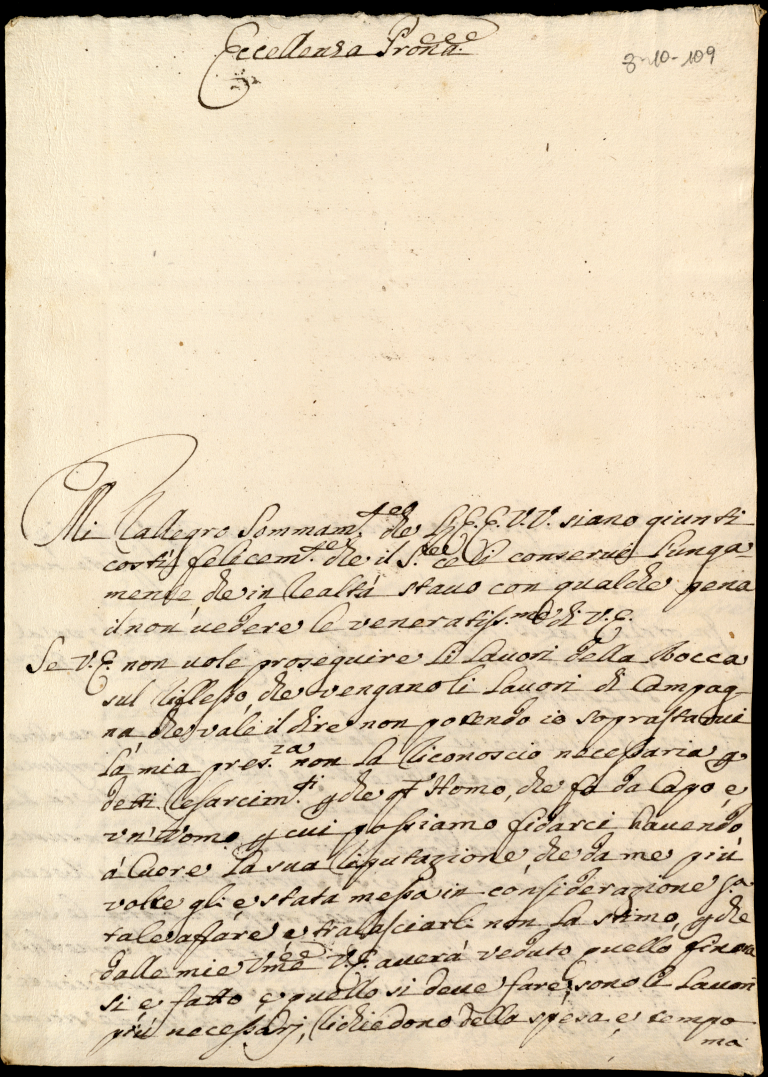 Eccellenza Prona.
8-10-109
Mi Rallegro Sommam.te che LL. E.E. V.V. siano giunti
costì felicem.te che il S.re le conservi lunga
mente che in Realtà stavo con qualche pena
il non vedere le veneratiss.me di V.E.
Se V.E. non vole proseguire li Lavori della Rocca
sul Riflesso che vengano li Lavori di Campag
na che vale il dire non potendo io soprastarvi
là mia pres.za non la Riconoscio necessaria p
detti Resarcim.ti p che q.t Homo, che fa da Capo è
vn' Uomo p cui possiamo fidarci havendo
à Cuore la sua Riputazione che da me più
volte gli è stata messa in considerazione p.a
tale affare e tralasciarli non la stimo, p che
dalle mie Vme V.E. averà veduto quello finora
si è fatto e quello si deve fare, sono li Lavori
più necessarj, Richiedono della spesa, e tempo
ma